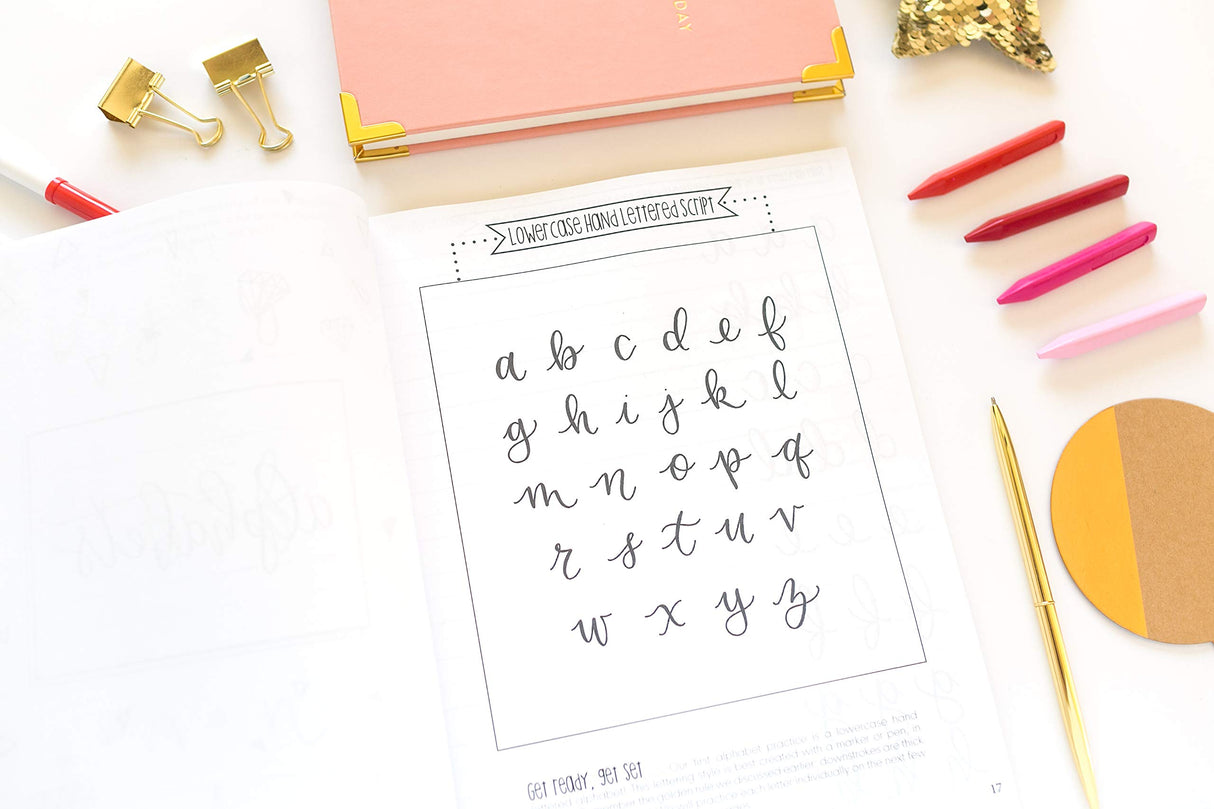 DAY
Lowercase Hand Lettered Script
a b c d e f
g h i j k l
m n o p q
r s t u v
w x y z
alphabets
Get Ready, Get Set
Our first alphabet practice is a lowercase hand
lettered alphabet! This lettering style is best created with a marker or pen, in
this golden rule we discussed earlier, downstrokes are thick
practice each letter individually on the next few
17